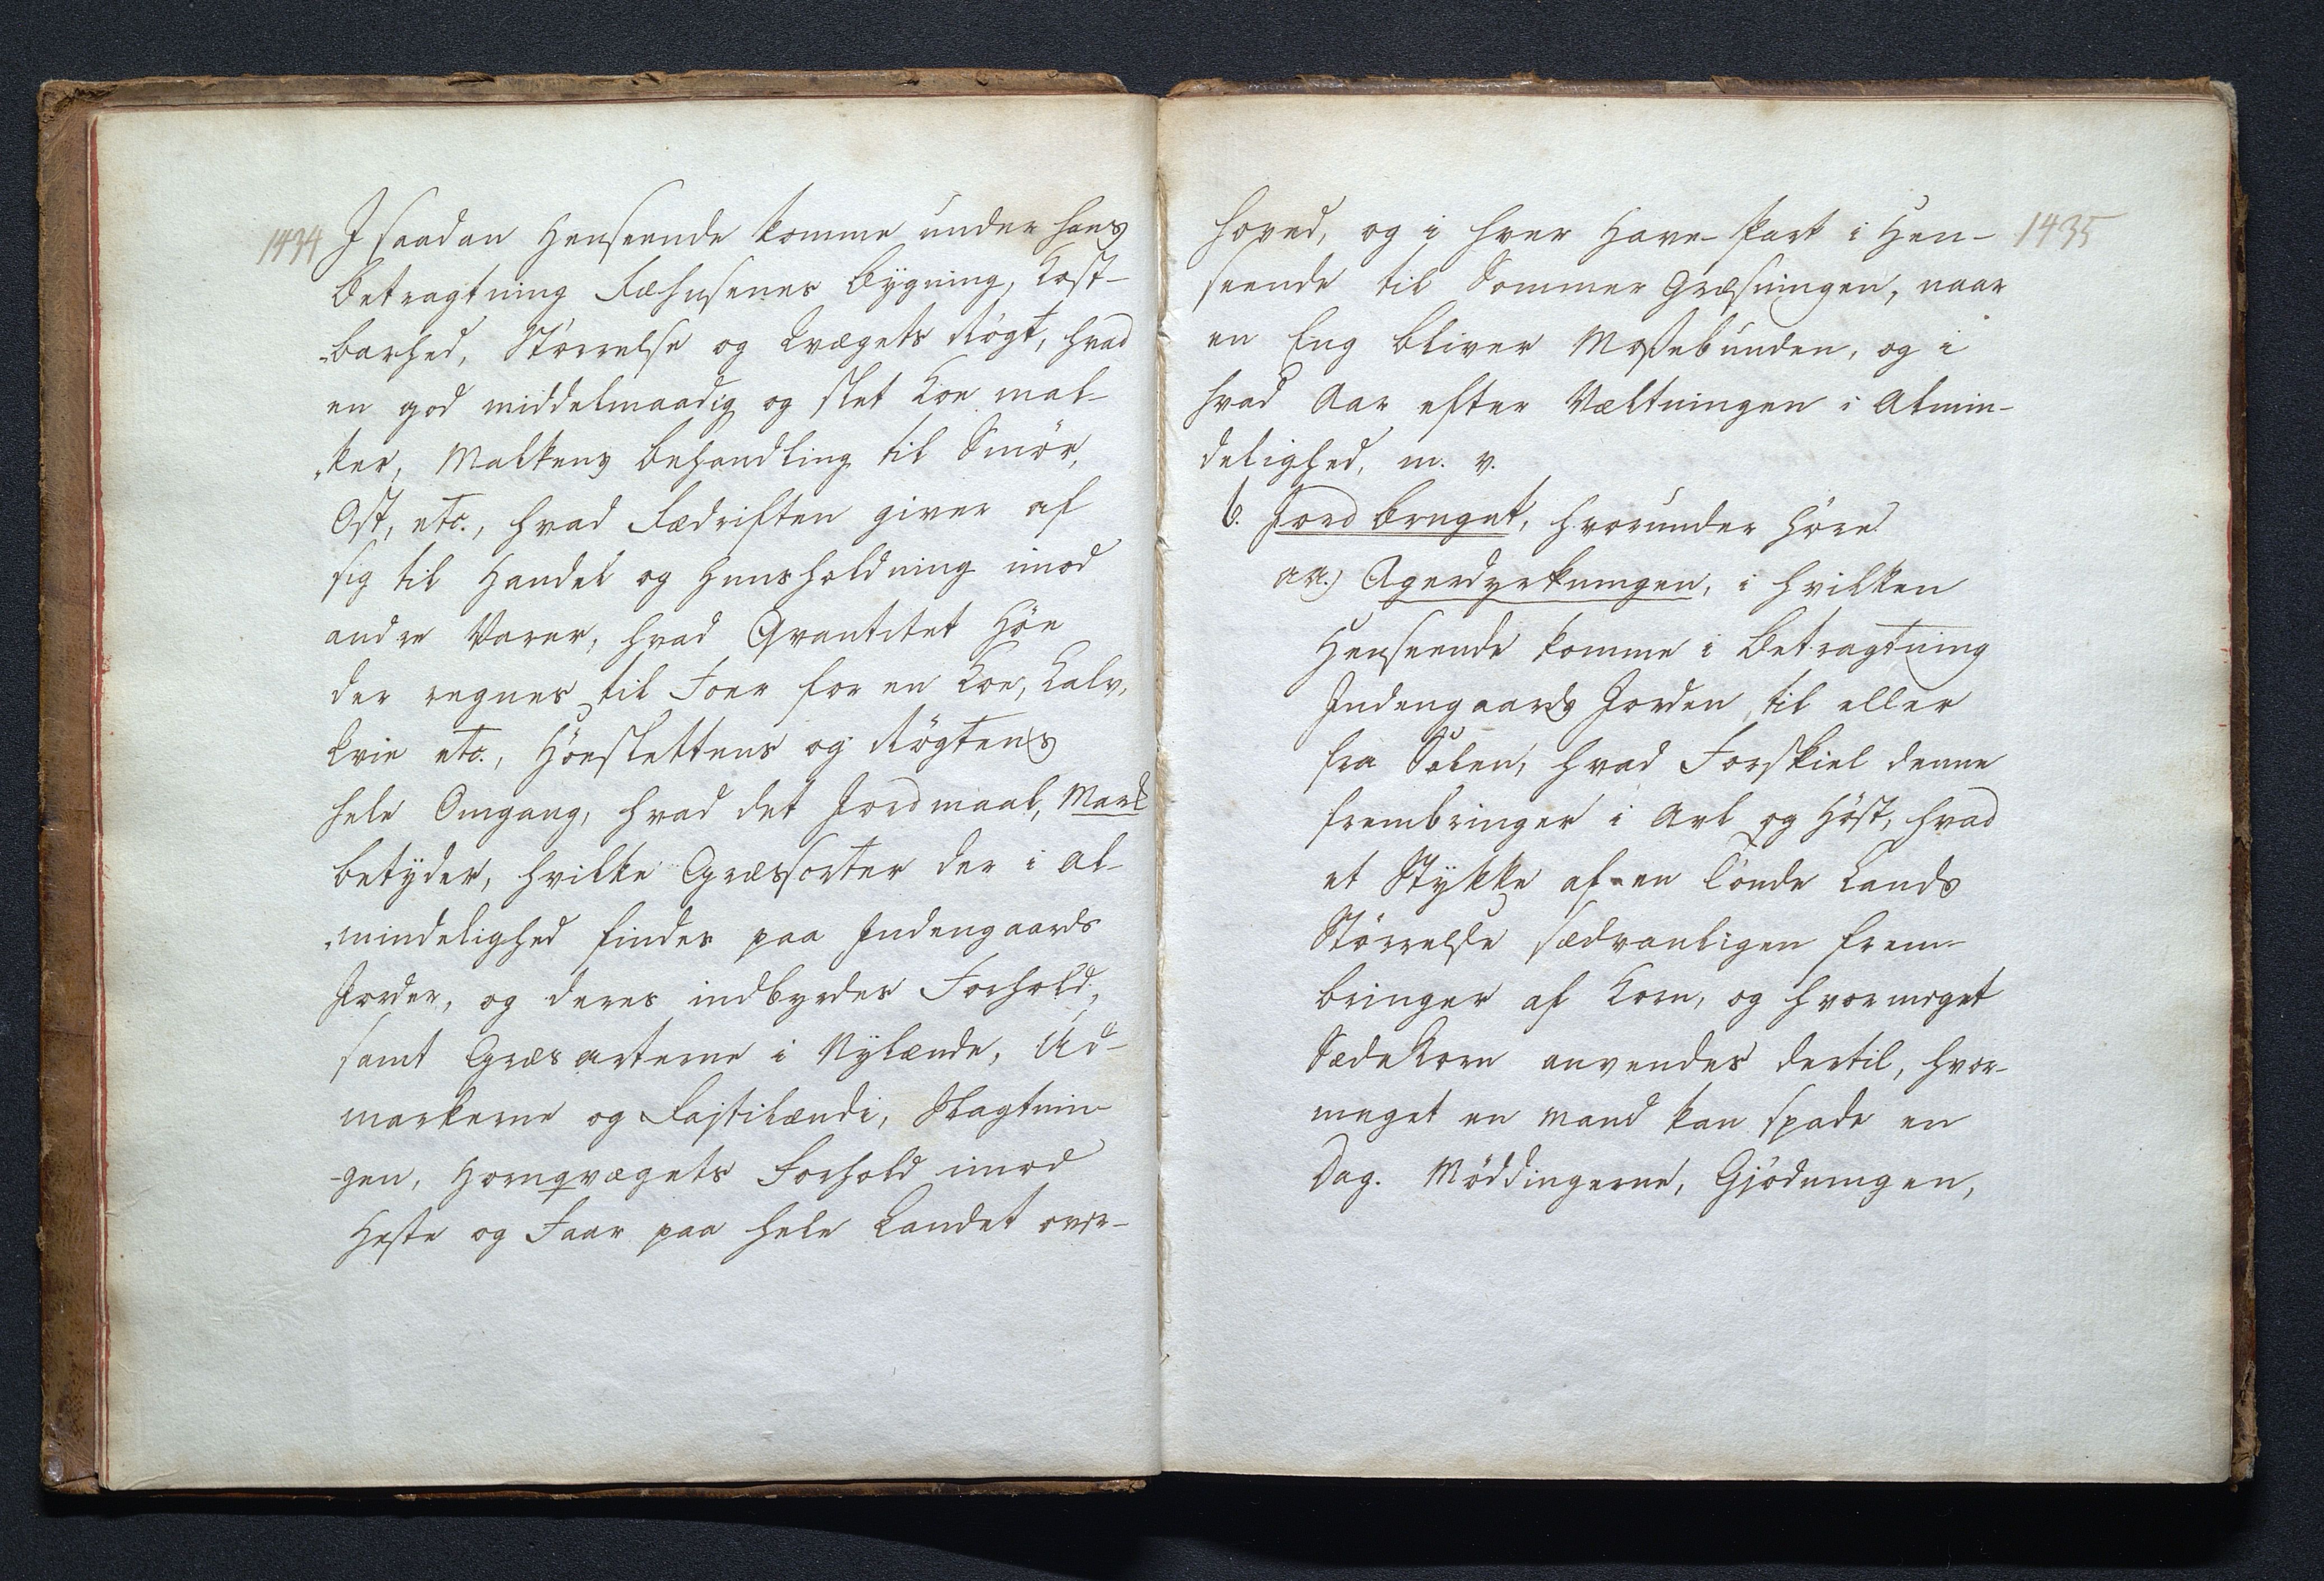 1434
I saadan Henseende komme under hans
Betragtning Fæhusenes Bygning, Kost-
barhed, Størrelse og Qvægets Rögt, hvad
en god middelmaadig og slet Koe mal-
ker, Malkens Behandling til Smör,
Ost, etc., hvad Fædriften giver af
sig til Handel og Huusholdning imod
andre Varer, hvad Qvantitet Höe
der regnes til Foer for en Koe, Kalv,
Kvie etc., Höeslettens og Rögtens
hele Omgang, hvad det Jordmaal, Mark
betyder, hvilke Græssorter der i al-
mindelighed findes paa Indengaards
Jorder, og deres indbyrdes Forhold,
samt Græsarterne i Nylænde, Ud-
markerne og Fastilændi, Slagtnin-
gen, Hornqvægets Forhold imod
Heste og Faar paa hele Landet over-
1435
hoved, og i hver Have-Part i Hen-
seende til Sommer Græsningen, naar
en Eng bliver Mossebunden, og i
hvad Aar efter Væltningen i Almin-
delighed, m. v.
b. Jordbruget, hvorunder höre
aa.) Agerdyrkningen, i hvilken
Henseende komme i Betragtning
Indengaards Jorden til eller
fra Solen, hvad Forskiel denne
frembringer i Arl og Höst, hvad
et Stykke af en Tönde Lands
Störrelse sædvanligen frem-
bringer af Korn, og hvormeget
SædeKorn anvendes dertil, hvor-
meget en Mand kan spade en
Dag. Möddingerne, Gjödningen,